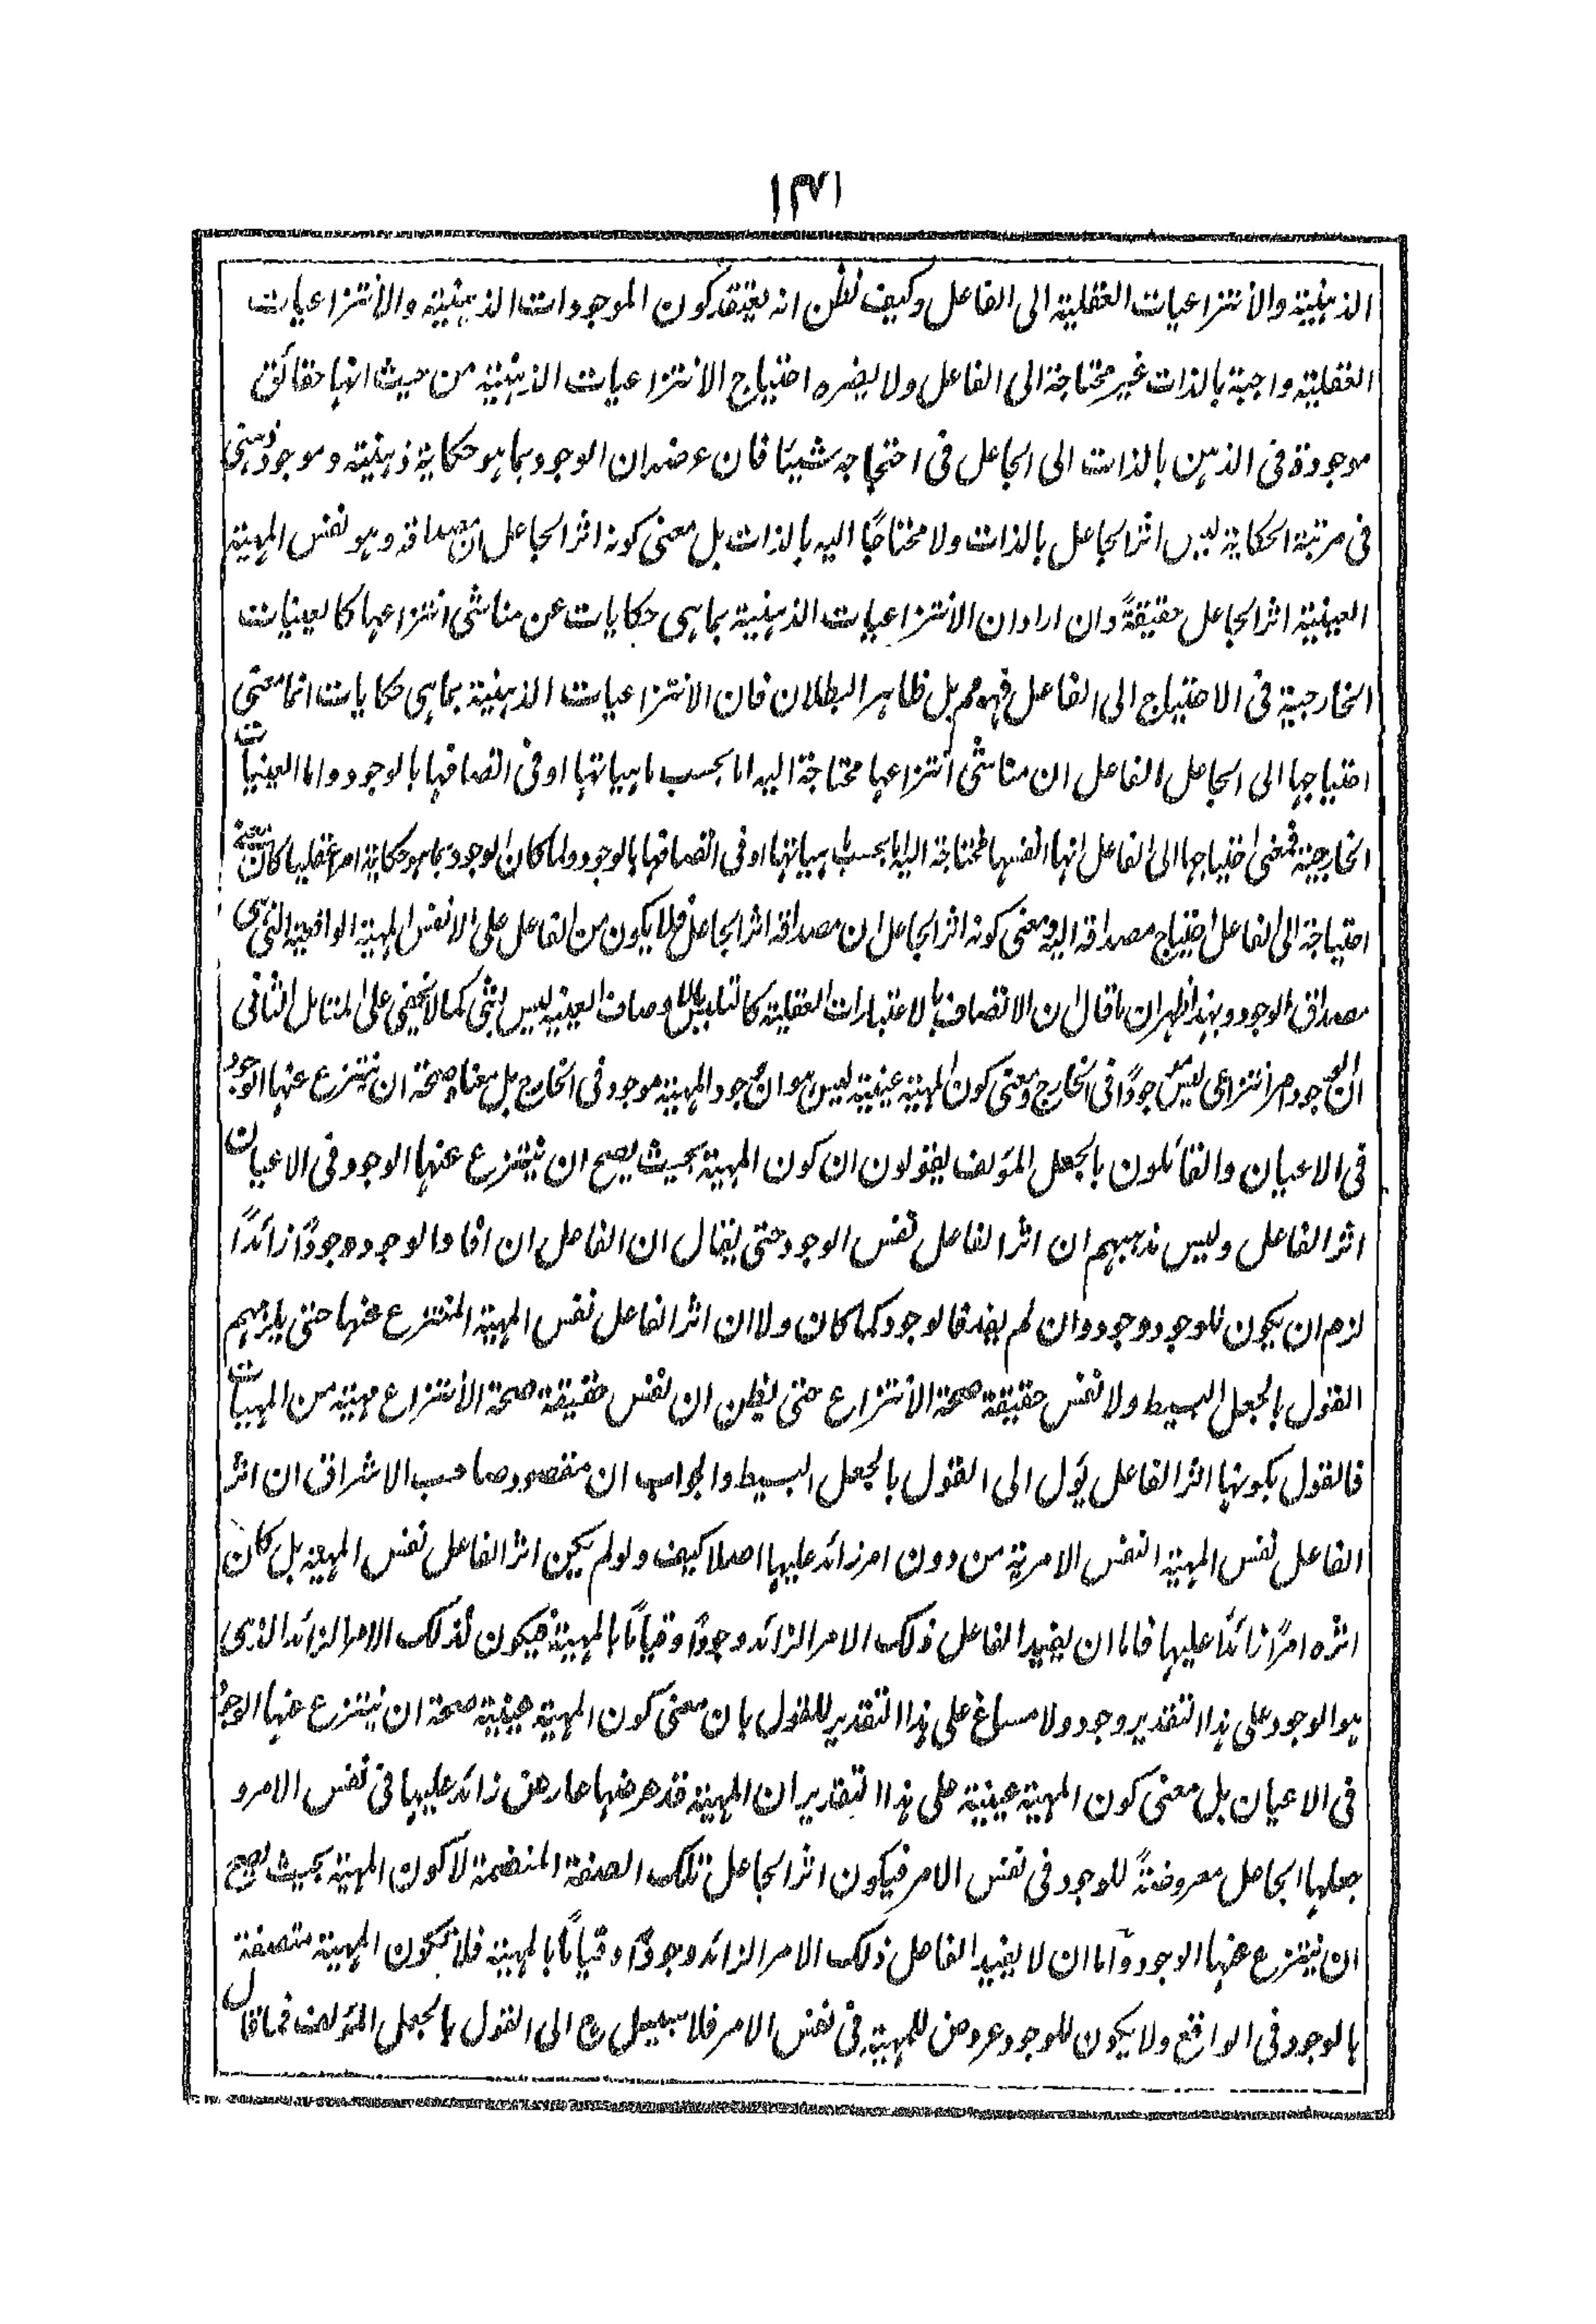 ١٣١
الذهنية والانتزاعيات العقلية الى الفاعل وكيف نظن انه يعتقد كون الموجودات الذهنية والانتزاعيات
العقلية واجبة بالذات غير محتاجة الى الفاعل ولا يضره احتياج الانتزاعيات الذهنية من حيث انها حقائق
موجودة فى الذهن بالذات الى الجاعل فى احتجاجه شيئا فان غرضه ان الوجود بما هو حكاية ذهنية وموجود ذهنى
فى مرتبة الحكاية ليس اثر الجاعل بالذات ولا محتاجًا اليه بالذات بل معنى كونه اثر الجاعل ان مصداقه وهو نفس المهية
العينية اثر الجاعل حقيقةً وان اراد ان الانتزاعيات الذهنية بما هى حكايات عن مناشى انتزاعها كالعينيات
الخارجية فى الاحتياج الى الفاعل فهو مم بل ظاهر البطلان فان الانتزاعيات الذهنية بما هى حكايات انما معنى
احتياجها الى الجاعل الفاعل ان مناشى انتزاعها محتاجة اليه اما بحسب ماهياتها او فى اتصافها بالوجود واما العينيات
الخارجية فمعنى احتياجها الى الفاعل انها انفسها محتاجة اليه اما بحسب مهياتها او فى اتصافها بالوجود ولما كان الوجود بما هو حكاية امرا عقليا كان معنى
احتياجه الى الفاعل احتياج مصداقه اليه ومعنى كونه اثر الجاعل ان مصداقه اثر الجاعل فلا يكون من الفاعل على الا نفس المهية الواقعية التى هى
مصداق الوجود وبهذا ظهر ان ما قال ان الاتصاف بالاعتبارات العقلية كالتلبس بالاوصاف العينية ليس بشى كما لا يخفى على المتامل الثانى
ان الوجود امر انتزاعى ليس موجودًا فى الخارج ومعنى كون المهية عينية ليس هو ان وجود المهية موجود فى الخارج بل معناه صحة ان ينتزع عنها الوجود
فى الاعيان والقائلون بالجعل المؤلف يقولون ان كون المهية بحيث يصح ان ينتزع عنها الوجود فى الاعيان
اثر الفاعل وليس مذهبهم ان اثر الفاعل نفس الوجود حتى يقال ان الفاعل ان افاد الوجود وجودًا زائدًا
لزم ان يكون للوجود وجود وان لم يفد فالوجود كما كان ولا ان اثر الفاعل نفس المهية المنتزع عنها حتى يلزمهم
القول بالجعل البسيط ولا نفس حقيقة صحة الانتزاع حتى يظن ان نفس حقيقة صحة الانتزاع مهية من المهيات
فالقول بكونها اثر الفاعل يؤل الى القول بالجعل البسيط والجواب ان مقصود صاحب الاشراق ان اثر
الفاعل نفس المهية النفس الامرية من دون امر زائد عليها اصلا كيف ولو لم يكن اثر الفاعل نفس المهية بل كان
اثره امرًا زائدًا عليها فاما ان يفيد الفاعل ذلك الامر الزائد وجودًا وقيامًا بالمهية فيكون لذلك الامر الزائد الذى
هو الوجود على هذا التقدير وجود ولا مساغ على هذا التقدير للقول بان معنى كون المهية عينية صحة ان ينتزع عنها الوجود
فى الاعيان بل معنى كون المهية عينية على هذا التقدير ان المهية قد عرضها عارض زائد عليها فى نفس الامر و
جعلها الجاعل معروضةً للوجود فى نفس الامر فيكون اثر الجاعل تلك الصفة المنضمة لا كون المهية بحيث يصح
ان ينتزع عنها الوجود واما ان لا يفيد الفاعل ذلك الامر الزائد وجودًا وقيامًا بالمهية فلا تكون المهية متصفة
بالوجود فى الواقع ولا يكون للوجود عروض للمهية فى نفس الامر فلا سبيل ح الى القول بالجعل المؤلف فما قال